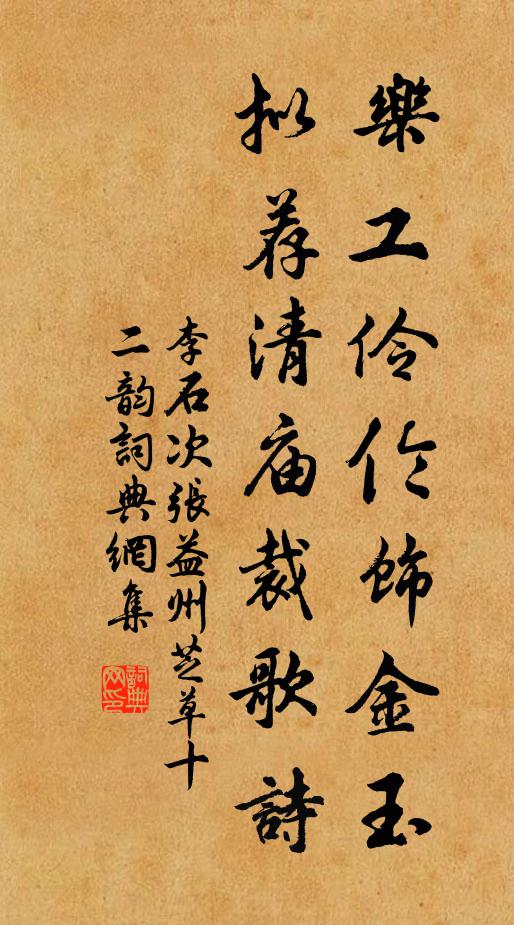 樂工伶伦飾金玉
拟荐清庙裁歌詩
李石次張益州芝草十
二韵詞典網集
詞典網印